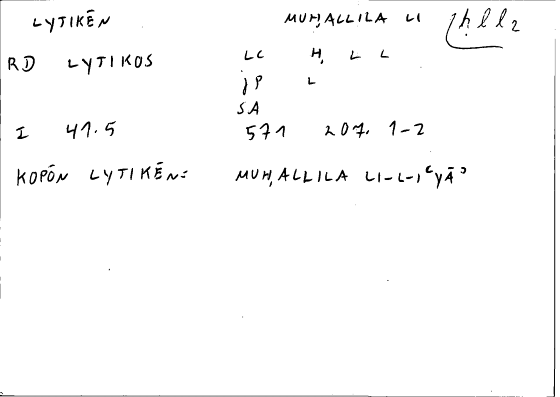 LYTIKĒN MUḤALLILA LI ḥll2
RD LYTIKOS LC Ḥ L L
jP L
SA
I 41.5 571 207. 1-2
KOPŌN LYTIKĒN: MUḤALLILA LI-L-IʿYĀʾ